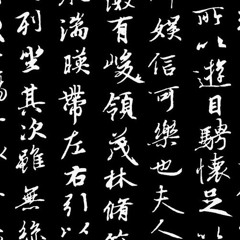 所以遊目騁懷足以
娛信可樂也夫人
有峻領茂林脩
湍暎帶左右引以
列坐其次雖無絲